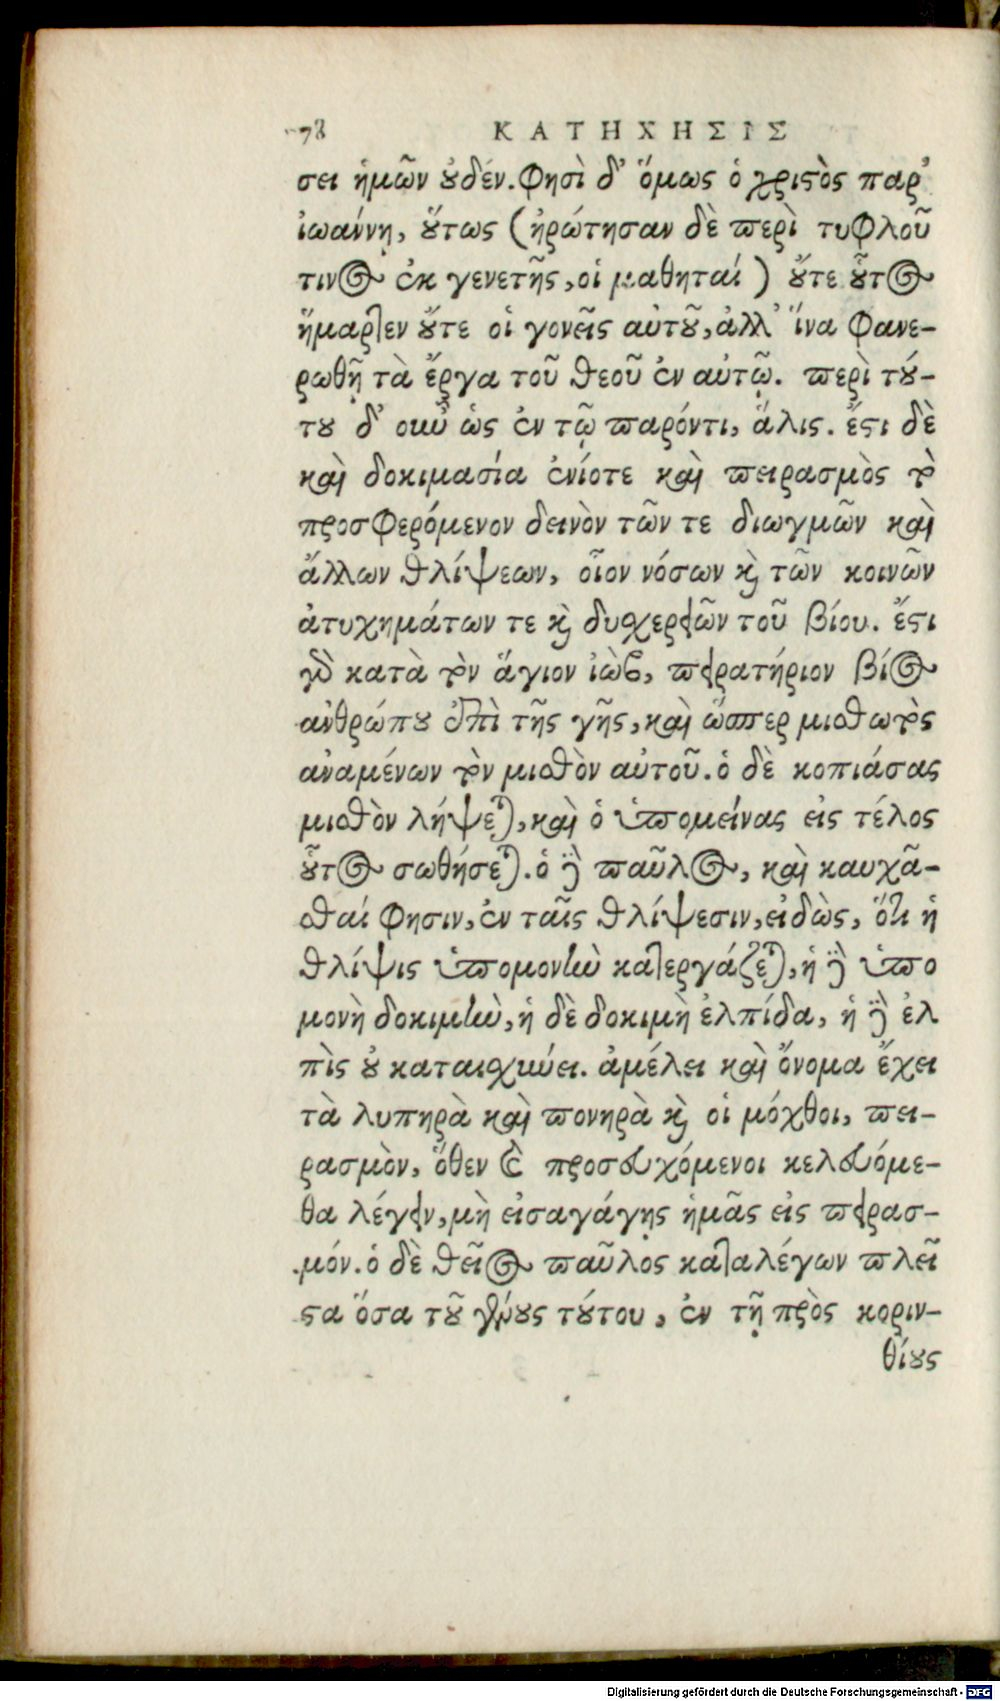 78 ΚΑΤΗΧΗΣΙΣ
σει ἡμῶν ȣ̓δέν. Φησὶ δ᾽ ὅμως ὁ χριϛὸς παρ᾽
ἰωάννῃ, ȣ̔́τως (ἠρώτησαν δὲ περὶ τυφλοῦ
τινος ἐκ γενετῆς, οἱ μαθηταί) ȣ̓́τε ȣ̔͂τος
ἥμαρτεν ȣ̓́τε οἱ γονεῖς αὐτȣ͂, ἀλλ᾽ ἵνα φανε-
ρωθῇ τὰ ἔργα τοῦ θεοῦ ἐν αὐτῷ. περὶ τȣ́-
τȣ δ᾽ οὖν ὡς ἐν τῷ παρόντι, ἅλις. ἔϛι δὲ
καὶ δοκιμασία ἐνίοτε καὶ πειρασμὸς τὸ
προσφερόμενον δεινὸν τῶν τε διωγμῶν καὶ
ἄλλων θλίψεων, οἷον νόσων καὶ τῶν κοινῶν
ἀτυχημάτων τε καὶ δυσχερειῶν τοῦ βίου. ἔϛι
γὰρ κατὰ τὸν ἅγιον ἰὼβ, πειρατήριον βίος
ἀνθρώπȣ ἐπὶ τῆς γῆς, καὶ ὥσπερ μισθωτὸς
ἀναμένων τὸν μισθὸν αὐτοῦ. ὁ δὲ κοπιάσας
μισθὸν λήψεται, καὶ ὁ ὑπομείνας εἰς τέλος
ȣ̔͂τος σωθήσεται. ὁ δὲ παῦλος, καὶ καυχᾶ-
σθαί φησιν, ἐν ταῖς θλίψεσιν, εἰδὼς, ὅτι ἡ
θλίψις ὑπομονὴν κατεργάζεται, ἡ δὲ ὑπο
μονὴ δοκιμὴν, ἡ δὲ δοκιμὴ ἐλπίδα, ἡ δὲ ἐλ
πὶς ȣ̓ καταισχύνει. ἀμέλει καὶ ὄνομα ἔχει
τὰ λυπηρὰ καὶ πονηρὰ καὶ οἱ μόχθοι, πει-
ρασμὸν, ὅθεν καὶ προσευχόμενοι κελευόμε-
θα λέγειν, μὴ εἰσαγάγῃς ἡμᾶς εἰς πειρασ-
μόν. ὁ δὲ θεῖος παῦλος καταλέγων πλεῖ
ϛα ὅσα τȣ͂ γένȣς τȣ́του, ἐν τῇ πρὸς κοριν-
θίȣς
Digitalisierung gefördert durch die Deutsche Forschungsgemeinschaft - DFG